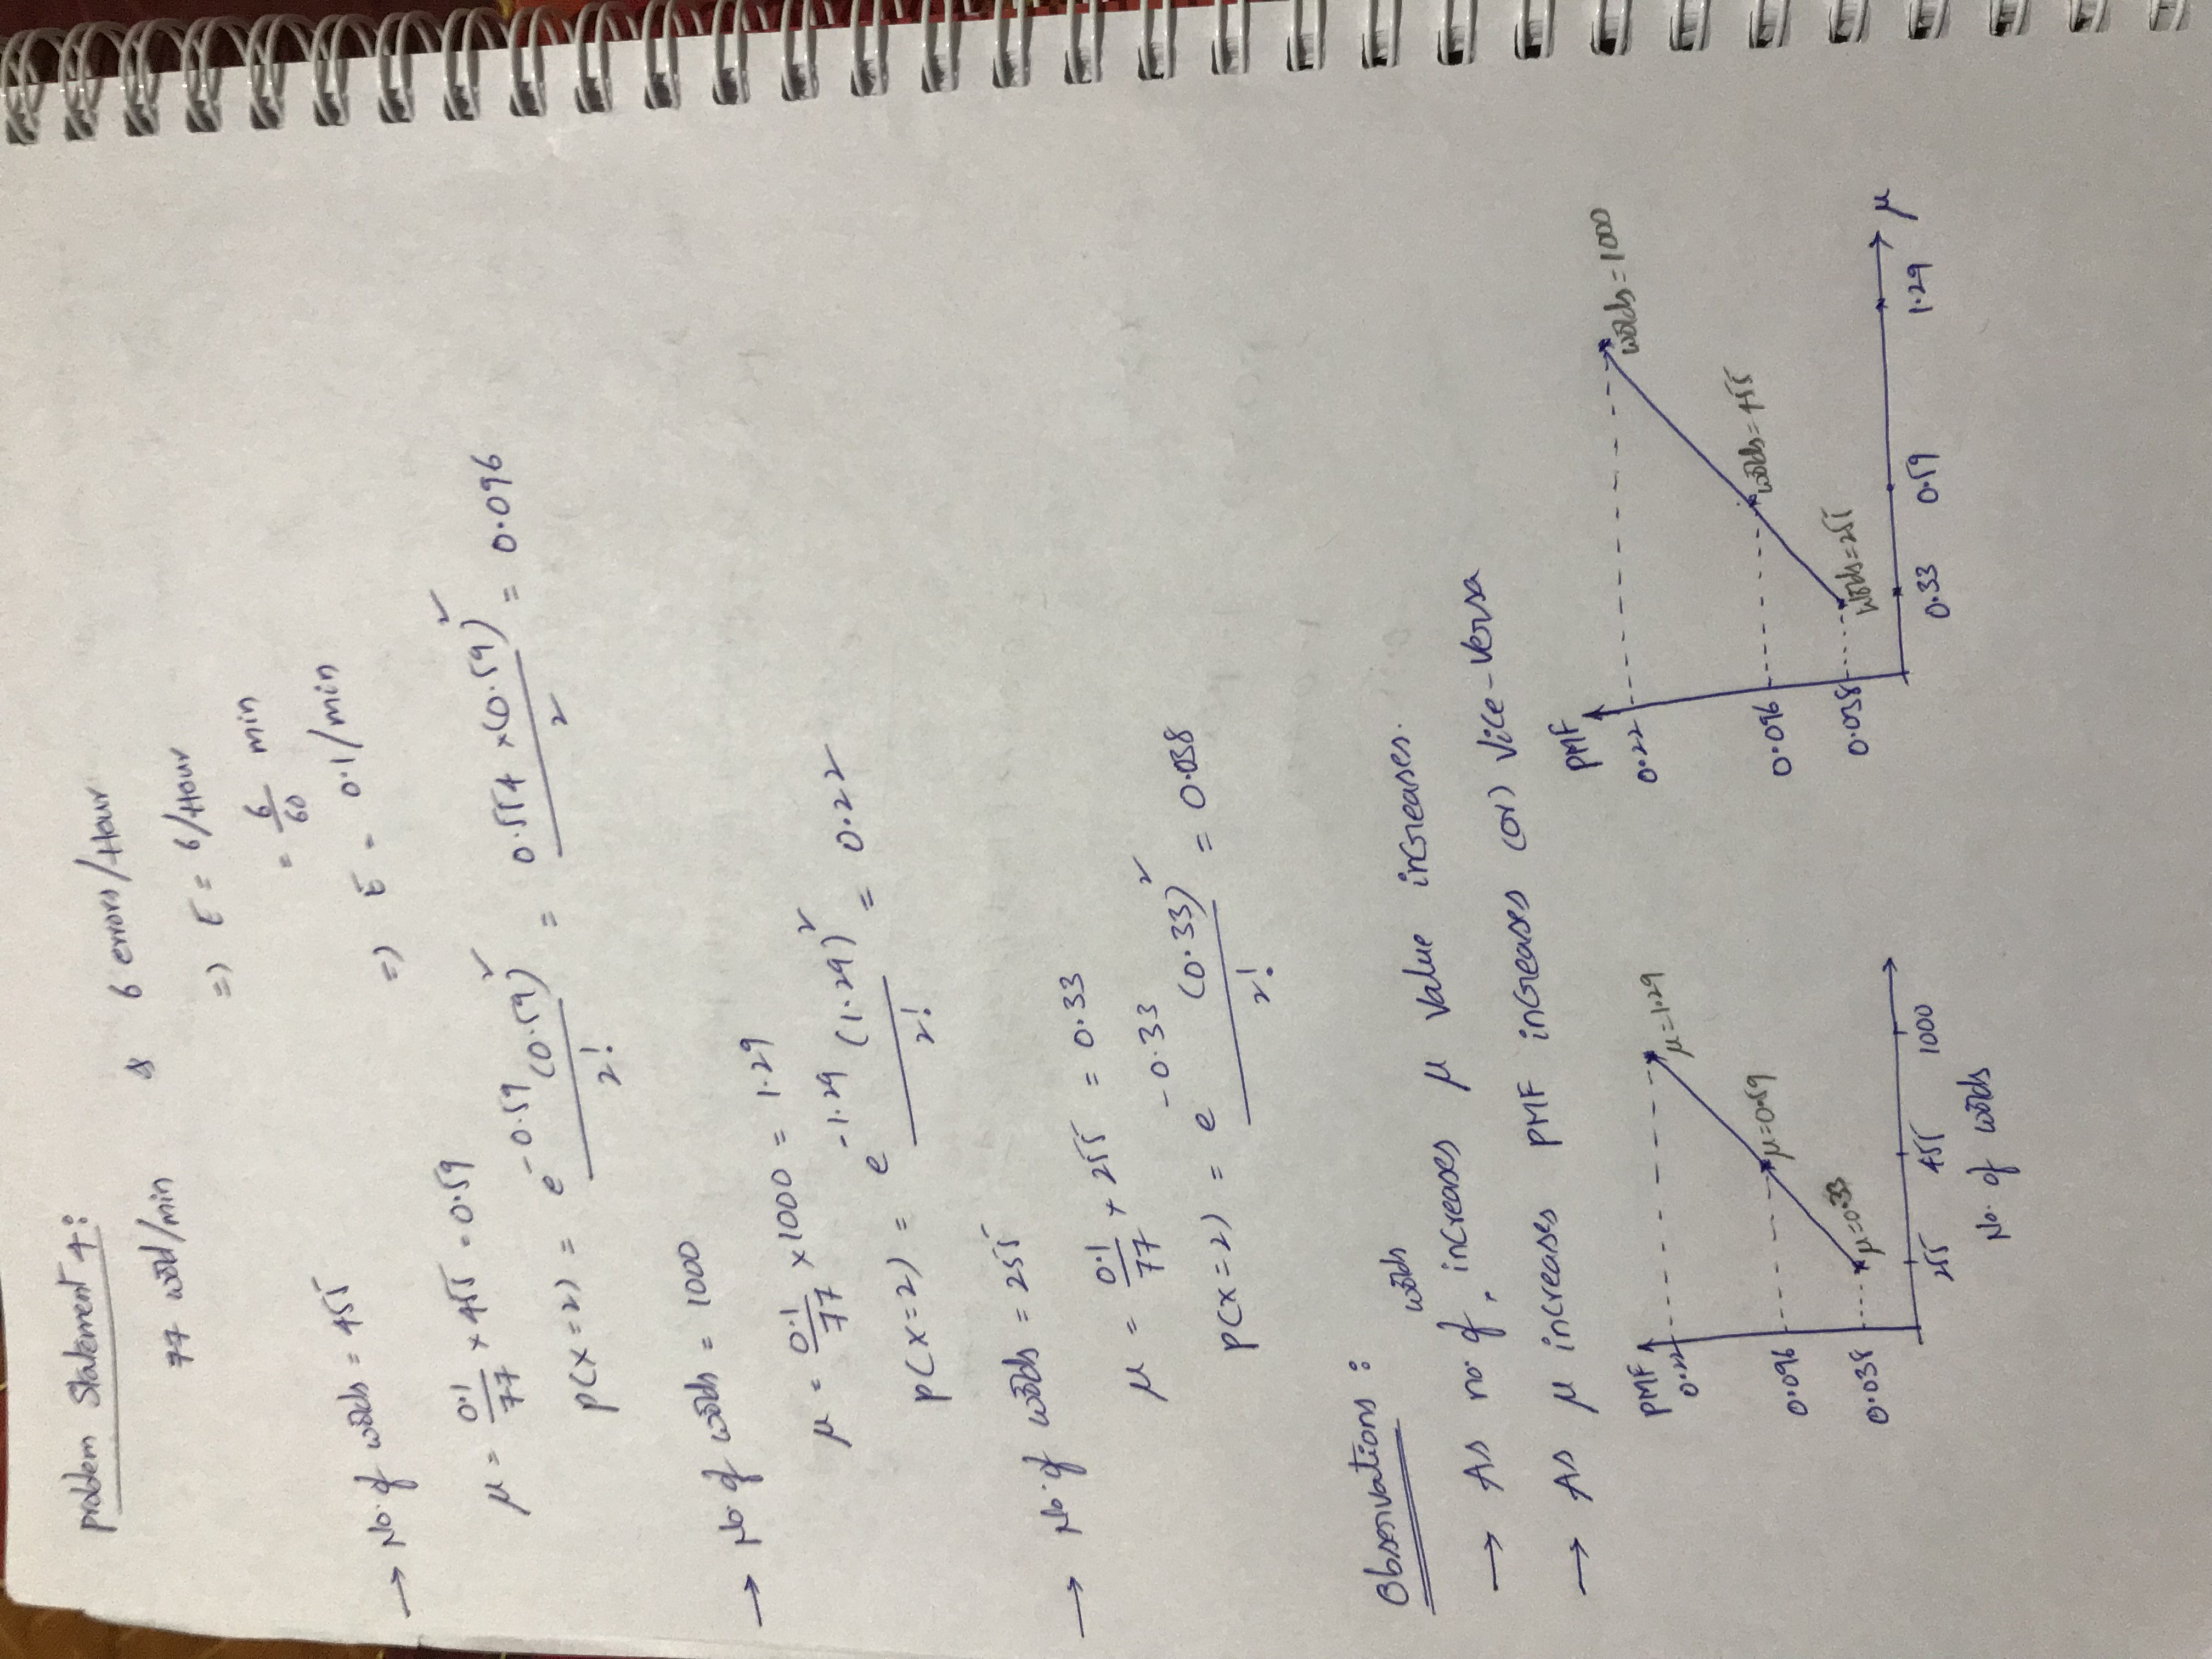 Problem Statement 4:
77 word/min & 6 errors/Hour
=> E = 6/Hour
= 6/60 min
=> E = 0.1/min
→ No. of words = 455
μ = 0.1/77 × 455 = 0.59
P(X=2) = e^-0.59 (0.59)^2 / 2! = 0.554 × (0.59)^2 / 2 = 0.096
→ No. of words = 1000
μ = 0.1/77 × 1000 = 1.29
P(X=2) = e^-1.29 (1.29)^2 / 2! = 0.22
→ No. of words = 255
μ = 0.1/77 × 255 = 0.33
P(X=2) = e^-0.33 (0.33)^2 / 2! = 0.038
Observations:
→ As no. of words increases μ value increases.
→ As μ increases PMF increases (or) Vice-Versa
PMF
0.22
μ=1.29
0.096
μ=0.59
0.038
μ=0.33
255 455 1000
No. of words
PMF
0.22
words=1000
0.096
words=455
0.038
words=255
0.33 0.59 1.29 μ